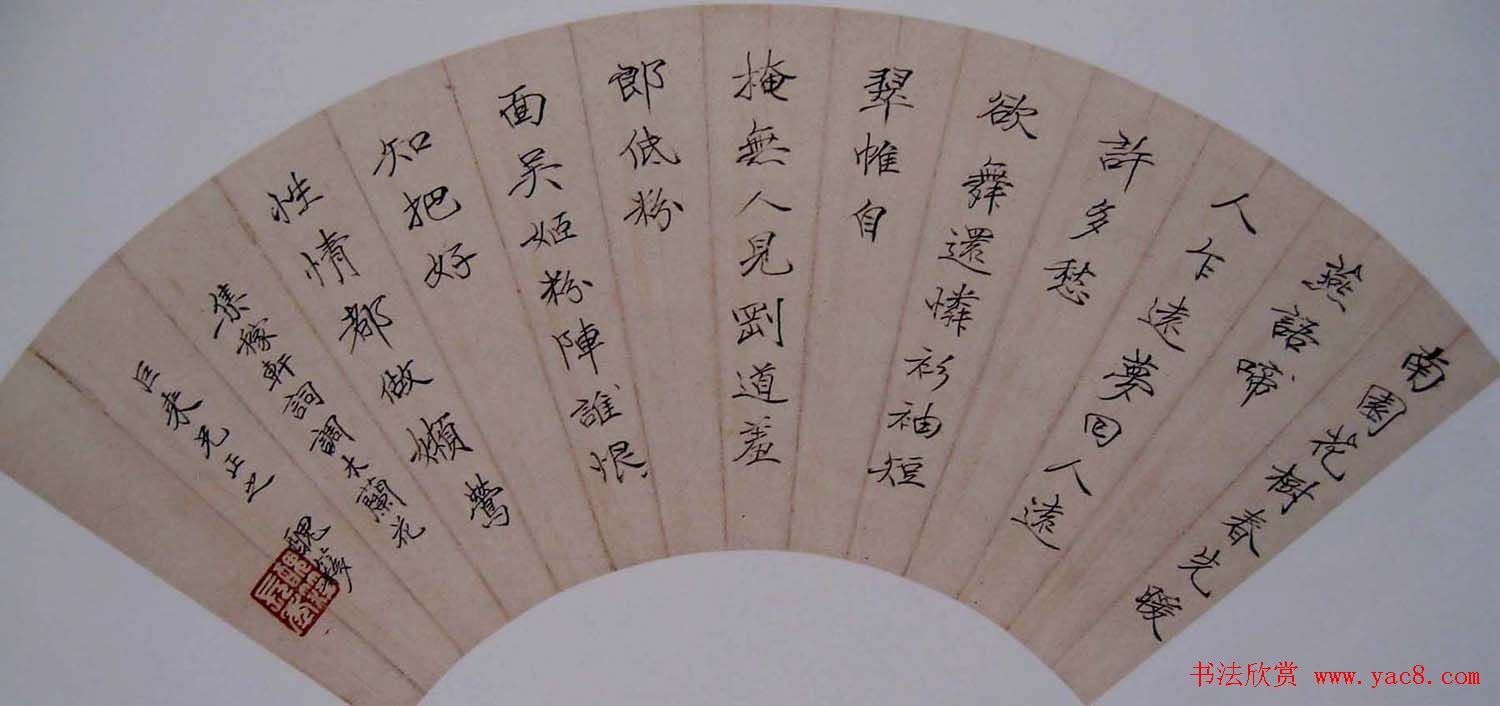 南園花樹春先暖
燕語啼
人乍遠夢回人遠
許多愁
欲舞還憐衫袖短
翠帷自
掩無人見剛道羞
郎低粉
面吴姬粉陣誰恨
知把好
性情都做嬾鶯
集稼軒詞調木蘭花
巨来兄正之 魏
书法欣赏 www.yac8.com